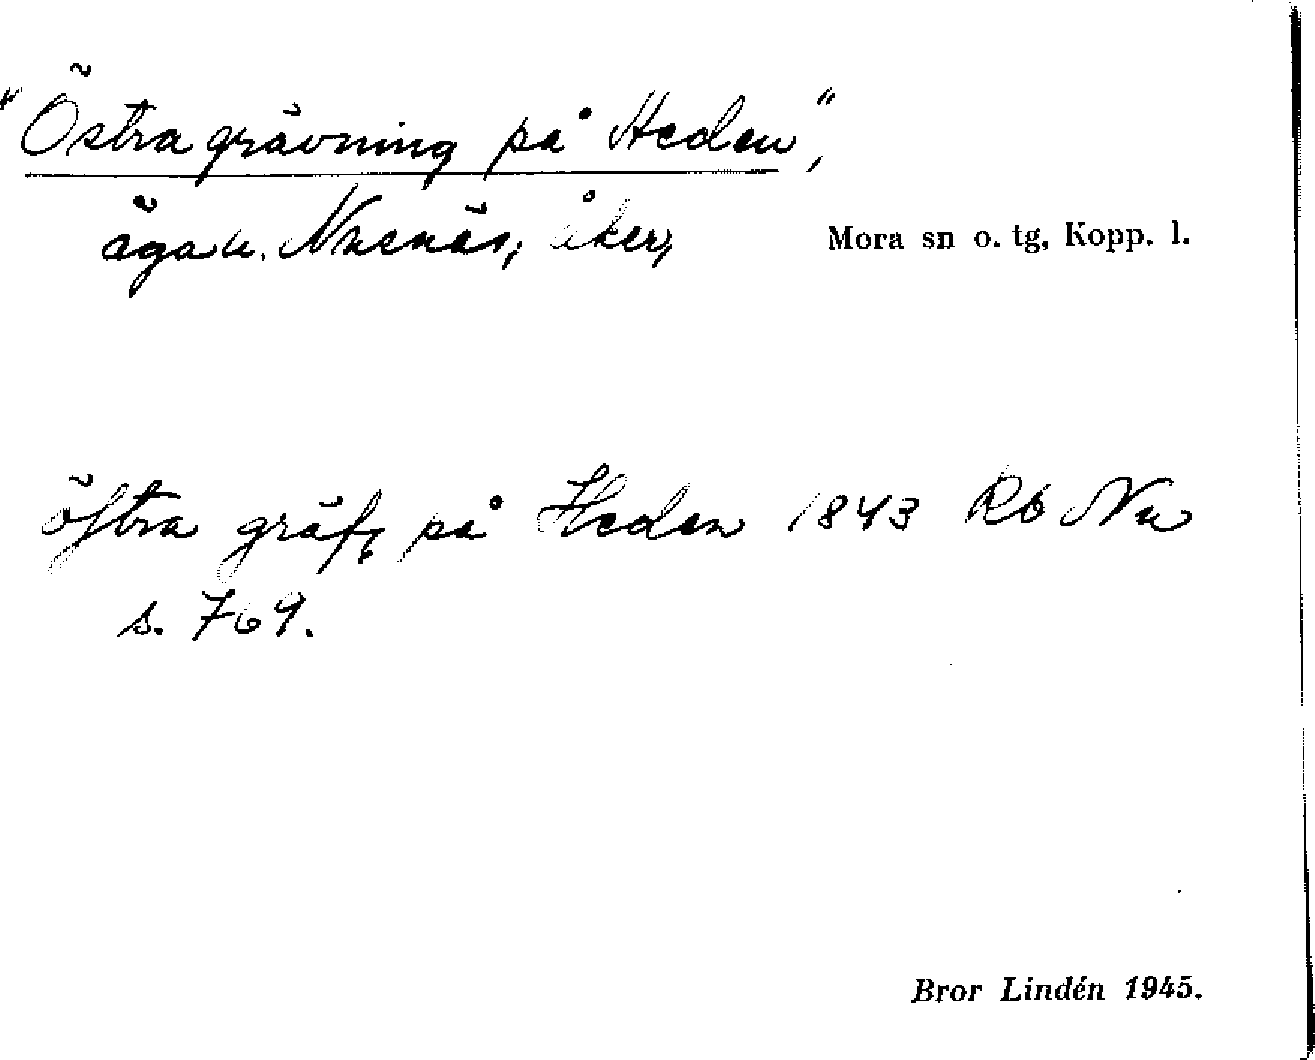 "Östra grävning på Heden",
äga u. Nusnäs, åker, Mora sn o. tg, Kopp. l.
öſtra gräfg på Heden 1843 Rb Nu
s. 769.
Bror Lindén 1945.